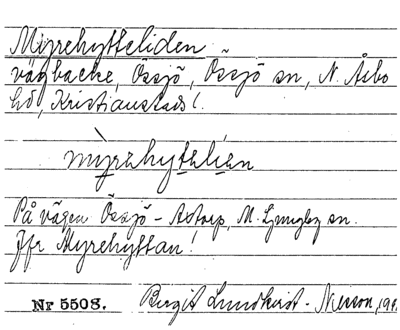 Myrehytteliden
vägbacke, Össjö, Össjö sn, N. Åsbo
hd, Kristianstads l.
mỳrəhytəlíən
På vägen Össjö - Åstorp, M. Ljungby sn.
Jfr Myrehyttan!
Nr 5508. Birgit Lundkvist - Nilsson,